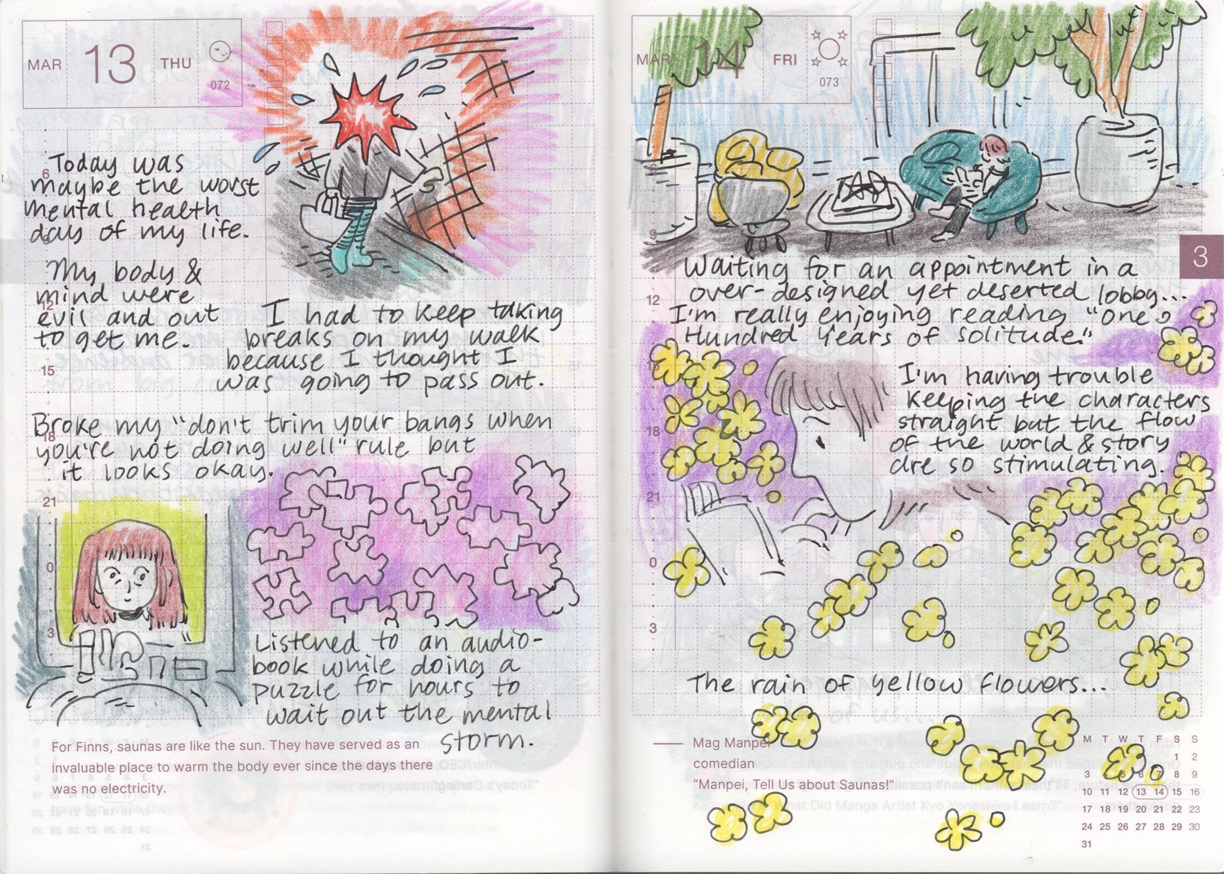 MAR 13 THU
072
Today was
maybe the worst
mental health
day of my life.
My body &
mind were
evil and out
to get me.
I had to keep taking
breaks on my walk
because I thought I
was going to pass out.
Broke my "don't trim your bangs when
you're not doing well" rule but
it looks okay.
Listened to an audio-
book while doing a
puzzle for hours to
wait out the mental
storm.
6
9
12
15
18
21
0
3
For Finns, saunas are like the sun. They have served as an
invaluable place to warm the body ever since the days there
was no electricity.
MAR 14 FRI
073
3
Waiting for an appointment in a
over-designed yet deserted lobby...
I'm really enjoying reading "One
Hundred Years of Solitude."
I'm having trouble
keeping the characters
straight but the flow
of the world & story
are so stimulating.
The rain of yellow flowers...
9
12
15
18
21
0
3
Mag Manpei
comedian
"Manpei, Tell Us about Saunas!"
M T W T F S S
1 2
3 4 5 6 7 8 9
10 11 12 13 14 15 16
17 18 19 20 21 22 23
24 25 26 27 28 29 30
31